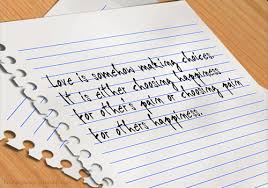 Love is somehow making choices.
It is either choosing happiness
for other's pain or choosing pain
for others happiness.